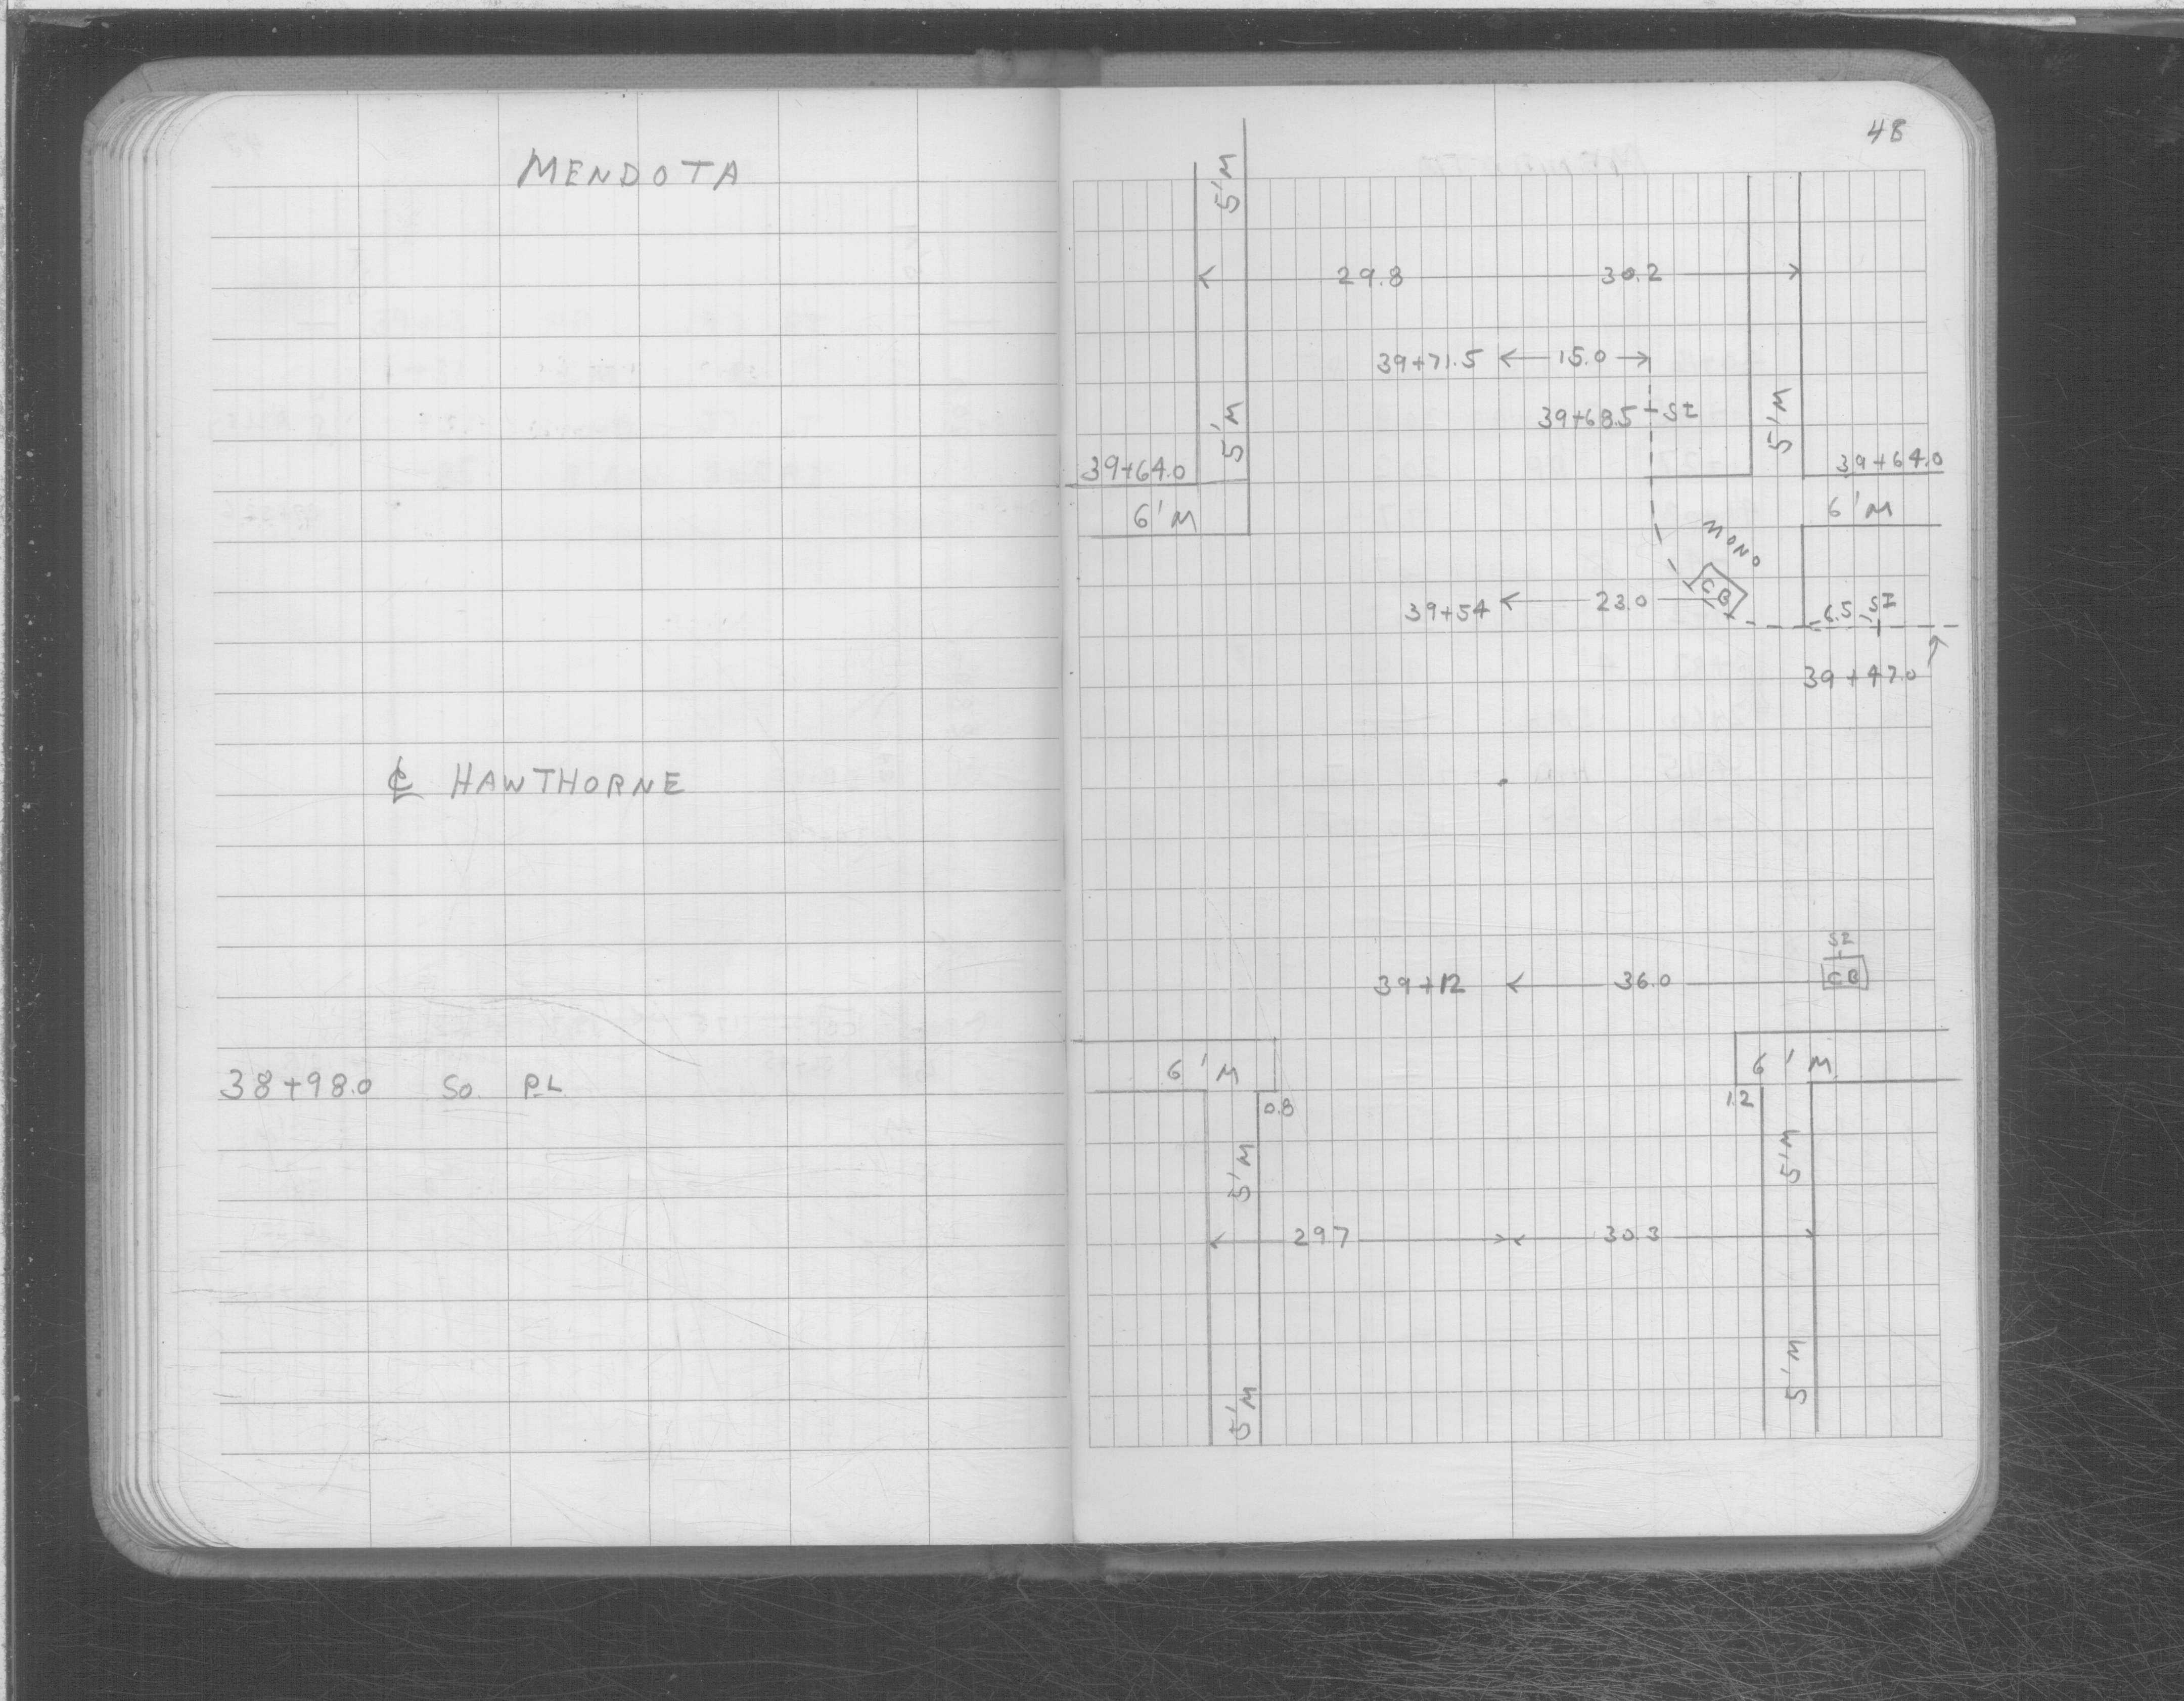 MENDOTA
℄ HAWTHORNE
38+98.0 So. PL
48
5'M
29.8 30.2
39+71.5 15.0
39+68.5 SI
5'M 5'M
39+64.0 39+64.0
6'M 6'M
MONO
CB
39+54 23.0
6.5 SI
39+47.0
SI
39+12 36.0 CB
6'M 6'M
0.8 1.2
5'M 5'M
29.7 30.3
5'M 5'M